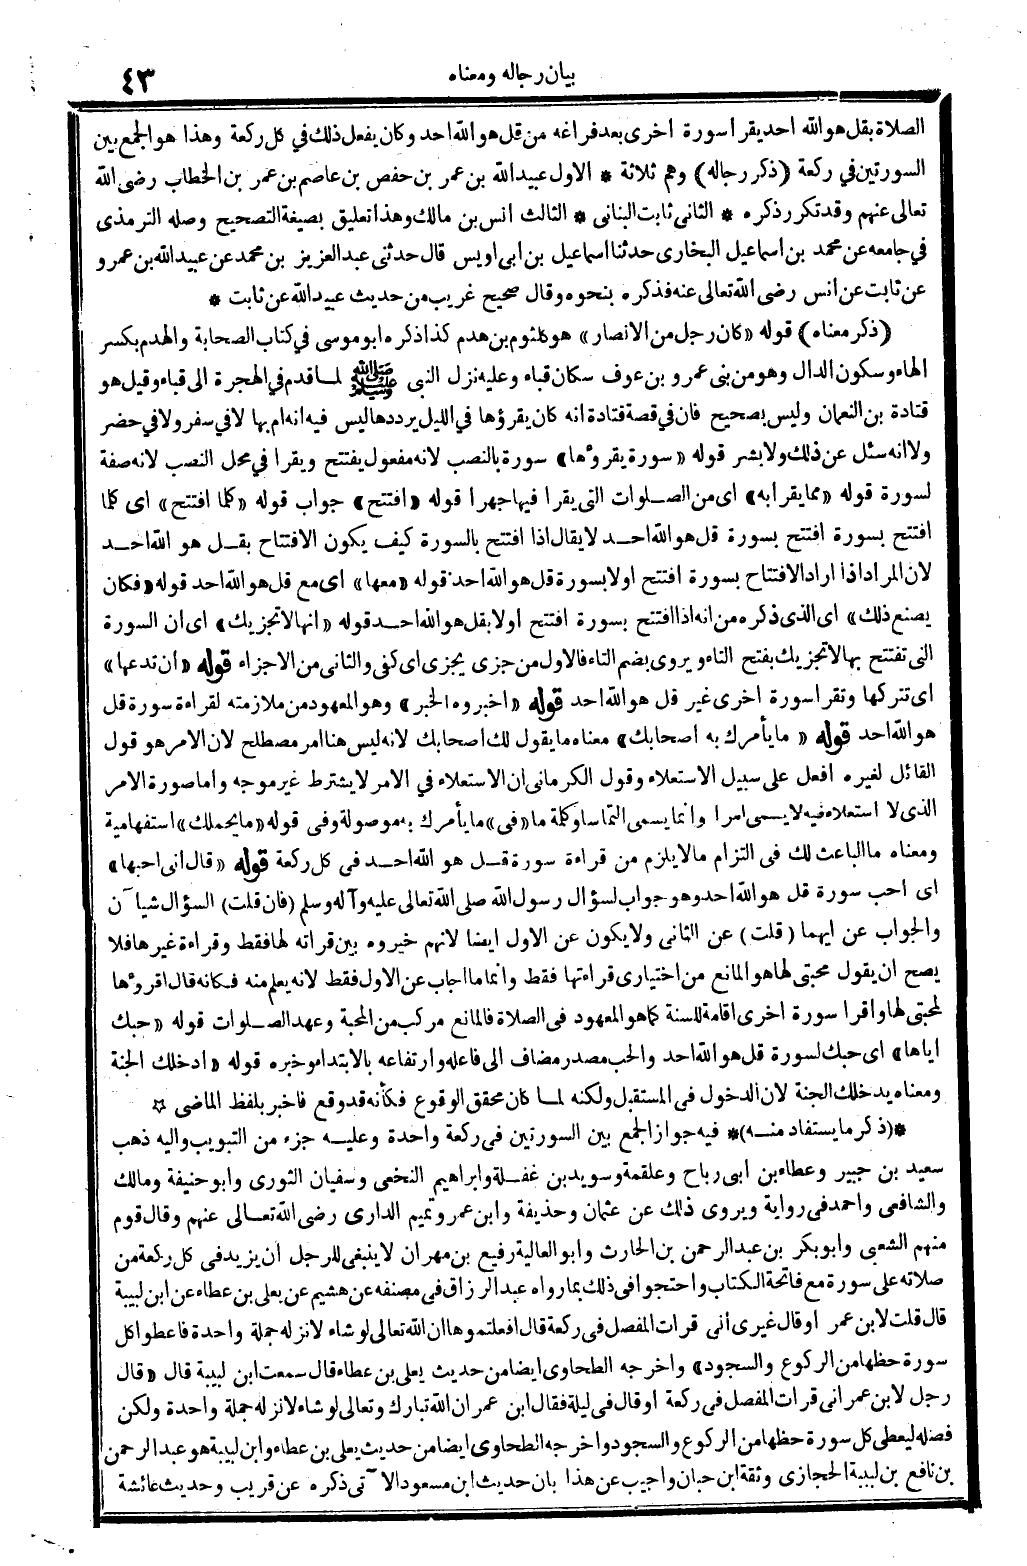 بيان رجاله ومعناه
٤٣
الصلاة بقل هو الله احد يقرأ سورة اخرى بعد فراغه من قل هو الله احد وكان يفعل ذلك في كل ركعة وهذا هو الجمع بين
السورتين في ركعة (ذكر رجاله) وهم ثلاثة * الاول عبيد الله بن عمر بن حفص بن عاصم بن عمر بن الخطاب رضى الله
تعالى عنهم وقد تكرر ذكره * الثانى ثابت البنانى * الثالث انس بن مالك وهذا تعليق بصيغة التصحيح وصله الترمذى
في جامعه عن محمد بن اسماعيل البخارى حدثنا اسماعيل بن ابى اويس قال حدثنى عبد العزيز بن محمد عن عبيد الله بن عمرو
عن ثابت عن انس رضى الله تعالى عنه فذكره بنحوه وقال صحيح غريب من حديث عبيد الله عن ثابت *
(ذكر معناه) قوله «كان رجل من الانصار» هو كلثوم بن هدم كذا ذكره ابو موسى في كتاب الصحابة والهدم بكسر
الهاء وسكون الدال وهو من بنى عمرو بن عوف سكان قباء وعليه نزل النبى ﷺ لما قدم في الهجرة الى قباء وقيل هو
قتادة بن النعمان وليس بصحيح فان في قصة قتادة انه كان يقرؤها في الليل يرددها ليس فيه انه ام بها لا في سفر ولا في حضر
ولا انه سئل عن ذلك ولا بشر قوله «سورة يقرؤها» سورة بالنصب لانه مفعول يفتتح ويقرا في محل النصب لانه صفة
لسورة قوله «مما يقرا به» اى من الصلوات التى يقرا فيها جهرا قوله «افتتح» جواب قوله «كلما افتتح» اى كلما
افتتح بسورة افتتح بسورة قل هو الله احد لا يقال اذا افتتح بالسورة كيف يكون الافتتاح بقل هو الله احد
لان المراد اذا اراد الافتتاح بسورة افتتح اولا بسورة قل هو الله احد قوله «معها» اى مع قل هو الله احد قوله «فكان
يصنع ذلك» اى الذى ذكره من انه اذا افتتح بسورة افتتح اولا بقل هو الله احد قوله «انها لا تجزيك» اى ان السورة
التى تفتتح بها لا تجزيك بفتح التاء ويروى بضم التاء فالاول من جزى يجزى اى كفى والثانى من الاجزاء قوله «ان تدعها»
اى تتركها وتقرا سورة اخرى غير قل هو الله احد قوله «اخبروه الخبر» وهو المعهود من ملازمته لقراءة سورة قل
هو الله احد قوله «ما يأمرك به اصحابك» معناه ما يقول لك اصحابك لانه ليس هنا امر مصطلح لان الامر هو قول
القائل لغيره افعل على سبيل الاستعلاء وقول الكرمانى ان الاستعلاء في الامر لا يشترط غير موجه واما صورة الامر
الذى لا استعلاء فيه لا يسمى امرا وانما يسمى التماسا وكلمة ما «فى» ما يأمرك به موصولة وفى قوله «ما يحملك» استفهامية
ومعناه ما الباعث لك فى التزام ما لا يلزم من قراءة سورة قل هو الله احد فى كل ركعة قوله «قال انى احبها»
اى احب سورة قل هو الله احد وهو جواب لسؤال رسول الله صلى الله تعالى عليه وآله وسلم (فان قلت) السؤال شيآن
والجواب عن ايهما (قلت) عن الثانى ولا يكون عن الاول ايضا لانهم خيروه بين قراته لها فقط وقراءة غيرها فلا
يصح ان يقول محبتى لها هو المانع من اختيارى قراءتها فقط وانما ما اجاب عن الاول فقط لانه يعلم منه فكانه قال اقرؤها
لمحبتى لها واقرا سورة اخرى اقامة للسنة كما هو المعهود فى الصلاة فالمانع مركب من المحبة وعهد الصلوات قوله «حبك
اياها» اى حبك لسورة قل هو الله احد والحب مصدر مضاف الى فاعله وارتفاعه بالابتداء وخبره قوله «ادخلك الجنة
ومعناه يدخلك الجنة لان الدخول فى المستقبل ولكنه لما كان محقق الوقوع فكأنه قد وقع فاخبر بلفظ الماضى ☆
*(ذكر ما يستفاد منه)* فيه جواز الجمع بين السورتين فى ركعة واحدة وعليه جزء من التبويب واليه ذهب
سعيد بن جبير وعطاء بن ابى رباح وعلقمة وسويد بن غفلة وابراهيم النخعى وسفيان الثورى وابو حنيفة ومالك
والشافعى واحمد فى رواية ويروى ذلك عن عثمان وحذيفة وابن عمر وتميم الدارى رضى الله تعالى عنهم وقال قوم
منهم الشعبى وابو بكر بن عبد الرحمن بن الحارث وابو العالية رفيع بن مهران لا ينبغى للرجل ان يزيد فى كل ركعة من
صلاته على سورة مع فاتحة الكتاب واحتجوا فى ذلك بما رواه عبد الرزاق فى مصنفه عن هشيم عن يعلى بن عطاء عن ابن لبيبة
قال قلت لابن عمر او قال غيرى أنى قرات المفصل فى ركعة قال افعلتموها ان الله تعالى لو شاء لانزله جملة واحدة فاعطوا كل
سورة حظها من الركوع والسجود» واخرجه الطحاوى ايضا من حديث يعلى بن عطاء قال سمعت ابن لبيبة قال «قال
رجل لابن عمر انى قرات المفصل فى ركعة او قال فى ليلة فقال ابن عمر ان الله تبارك وتعالى لو شاء لانزله جملة واحدة ولكن
فصله ليعطى كل سورة حظها من الركوع والسجود واخرجه الطحاوى ايضا من حديث يعلى بن عطاء وابن لبيبة هو عبد الرحمن
بن نافع بن لبيبة الحجازى وثقة ابن حبان واجيب عن هذا بان حديث ابن مسعود الآتى ذكره عن قريب وحديث عائشة